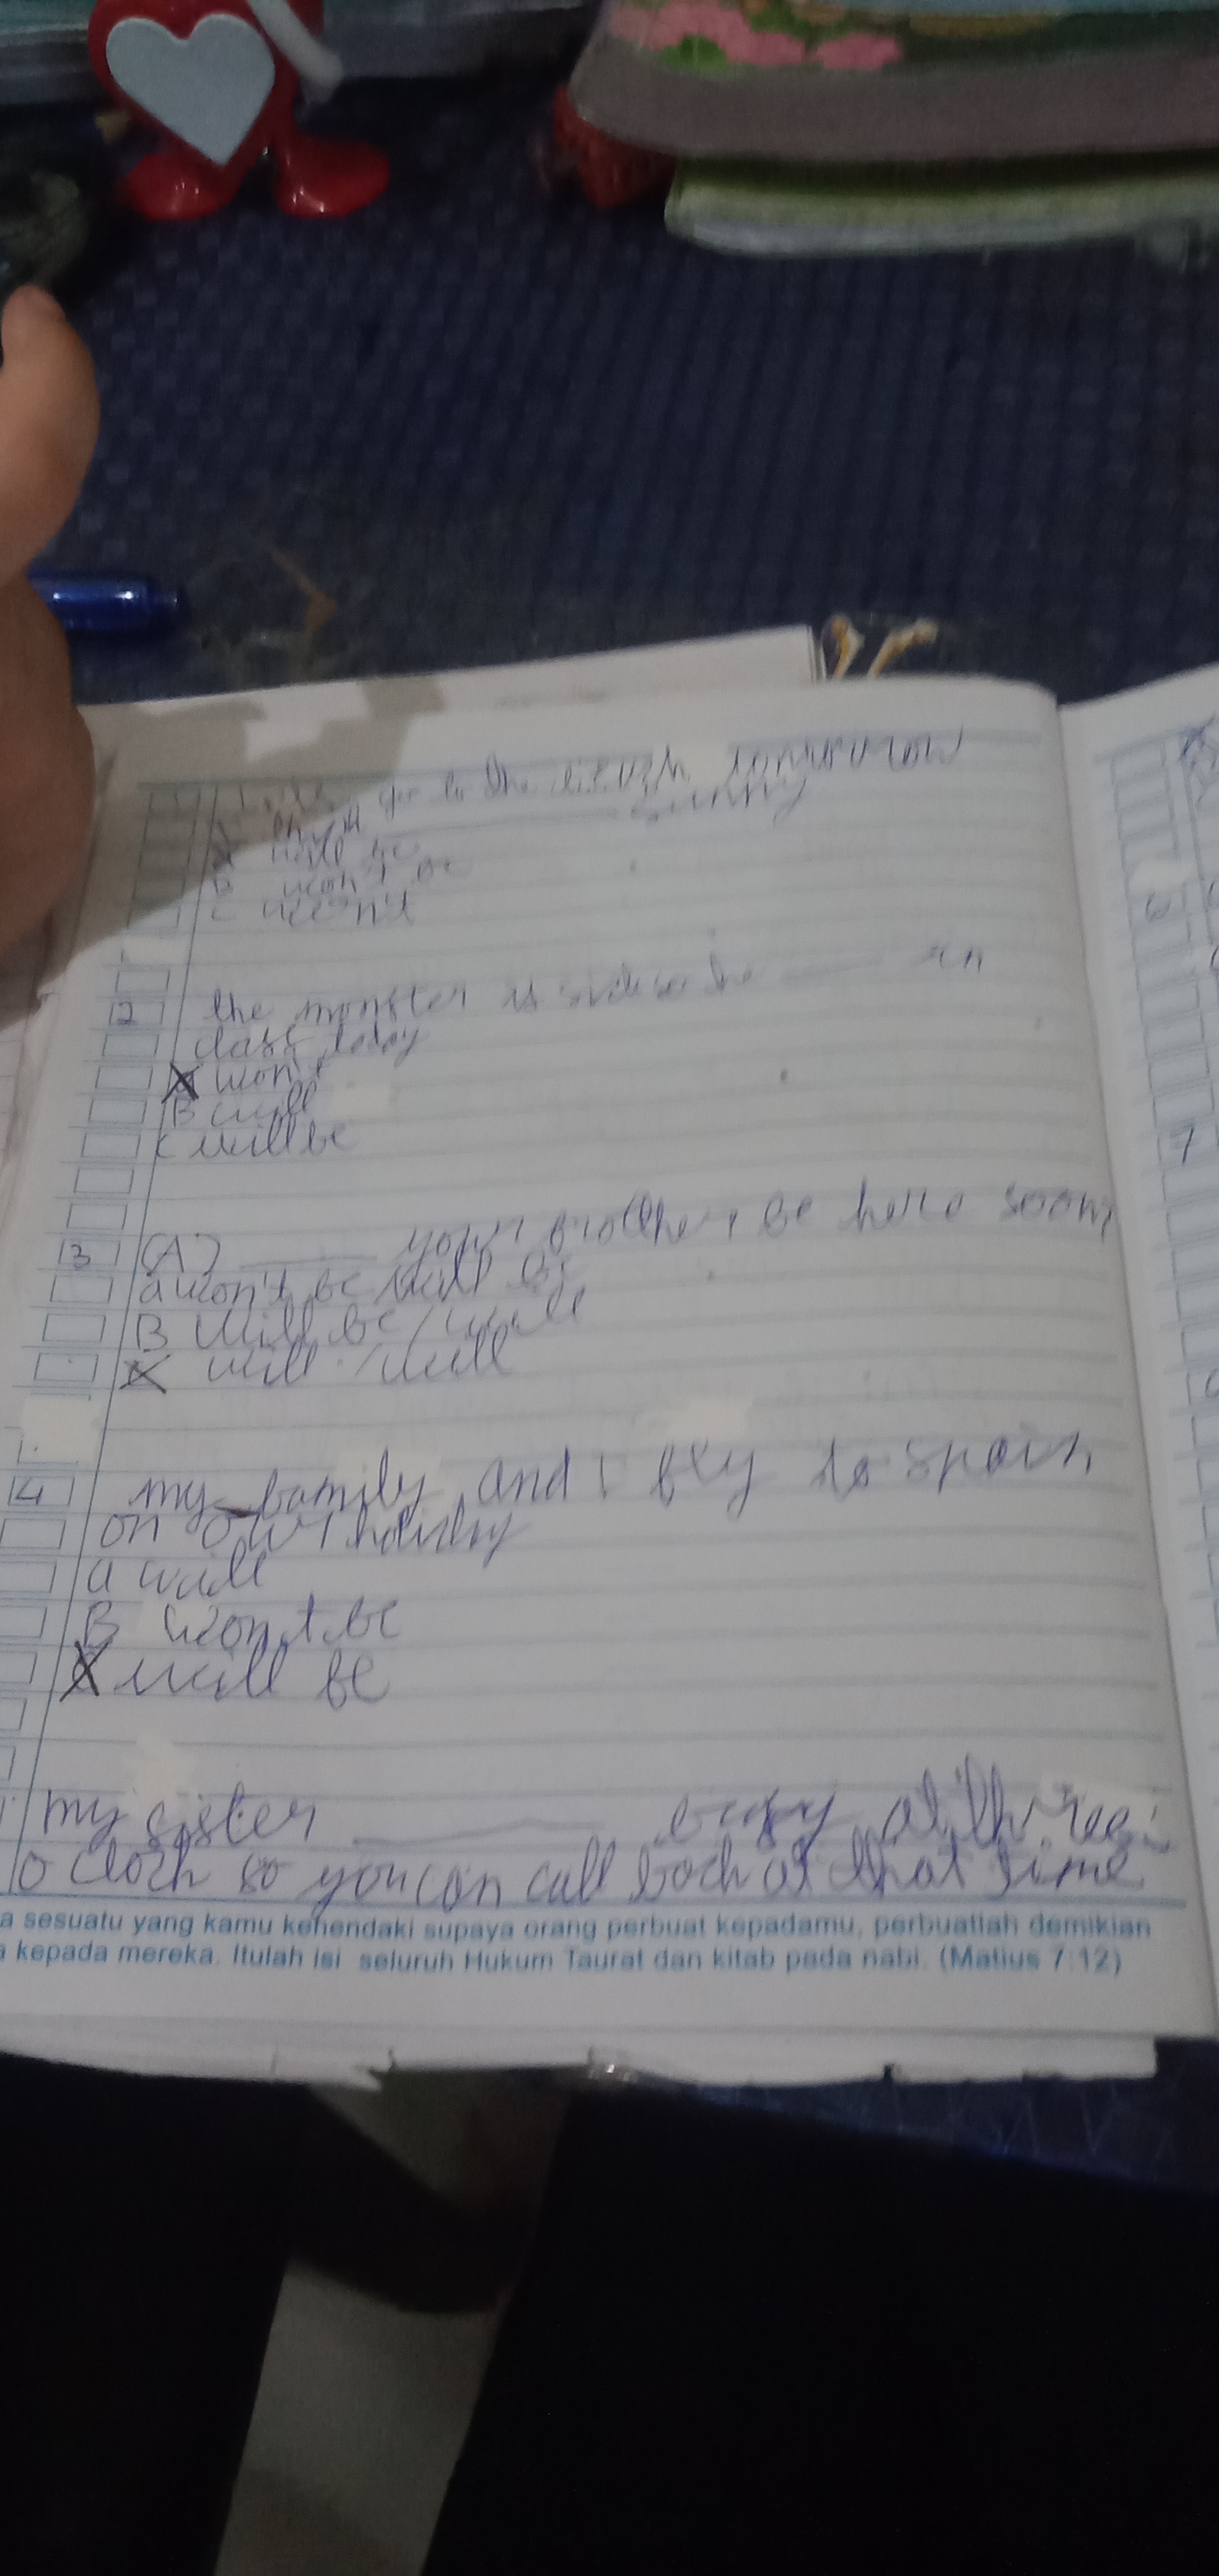 go to the tomorrow
sunny
A will be
B won't be
C won't
2 the monster is so he in
class today
A won't
B will
C will be
3 (A) your brother be here soon
a won't be will be
B will be / will
will / will
4 my family and I fly to spain
on our holiday
a will
B won't be
will be
my sister busy at three
o cloch so you can call boch at that time
a sesuatu yang kamu kehendaki supaya orang perbuat kepadamu, perbuatlah demikian
kepada mereka. Itulah isi seluruh Hukum Taurat dan kitab pada nabi. (Matius 7:12)
6
7